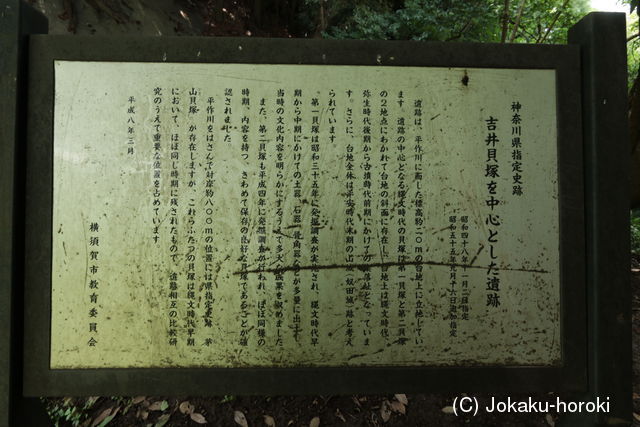 神奈川県指定史跡
吉井貝塚を中心とした遺跡
昭和四十八年十一月二日指定
昭和五十五年九月十六日追加指定
遺跡は、平作川に面した標高約二〇ｍの台地上に立地してい
ます。遺跡の中心となる縄文時代の貝塚は第一貝塚と第二貝塚
の２地点にわかれて台地の斜面に存在し、台地上は縄文時代、
弥生時代後期から古墳時代前期にかけての集落址となっていま
す。さらに、台地全体は平安時代末期の山城（怒田城）跡と考え
られています。
第一貝塚は昭和三十五年に発掘調査が実施され、縄文時代早
期から中期にかけての土器、石器、骨角器などが多量に出土し、
当時の文化内容を明らかにするうえで多大の成果を収めました。
また、第二貝塚も平成四年に発掘調査が行われ、ほぼ同様の
時期、内容を持つ、きわめて保存の良好な貝塚であることが確
認されました。
平作川をはさんで対岸約八〇〇ｍの位置には県指定史跡　茅
山貝塚　が存在しますが、これらふたつの貝塚は縄文時代早期
において、ほぼ同じ時期に残されたもので、遺跡相互の比較研
究のうえで重要な位置を占めています。
平成八年三月
横須賀市教育委員会
(C) Jokaku-horoki